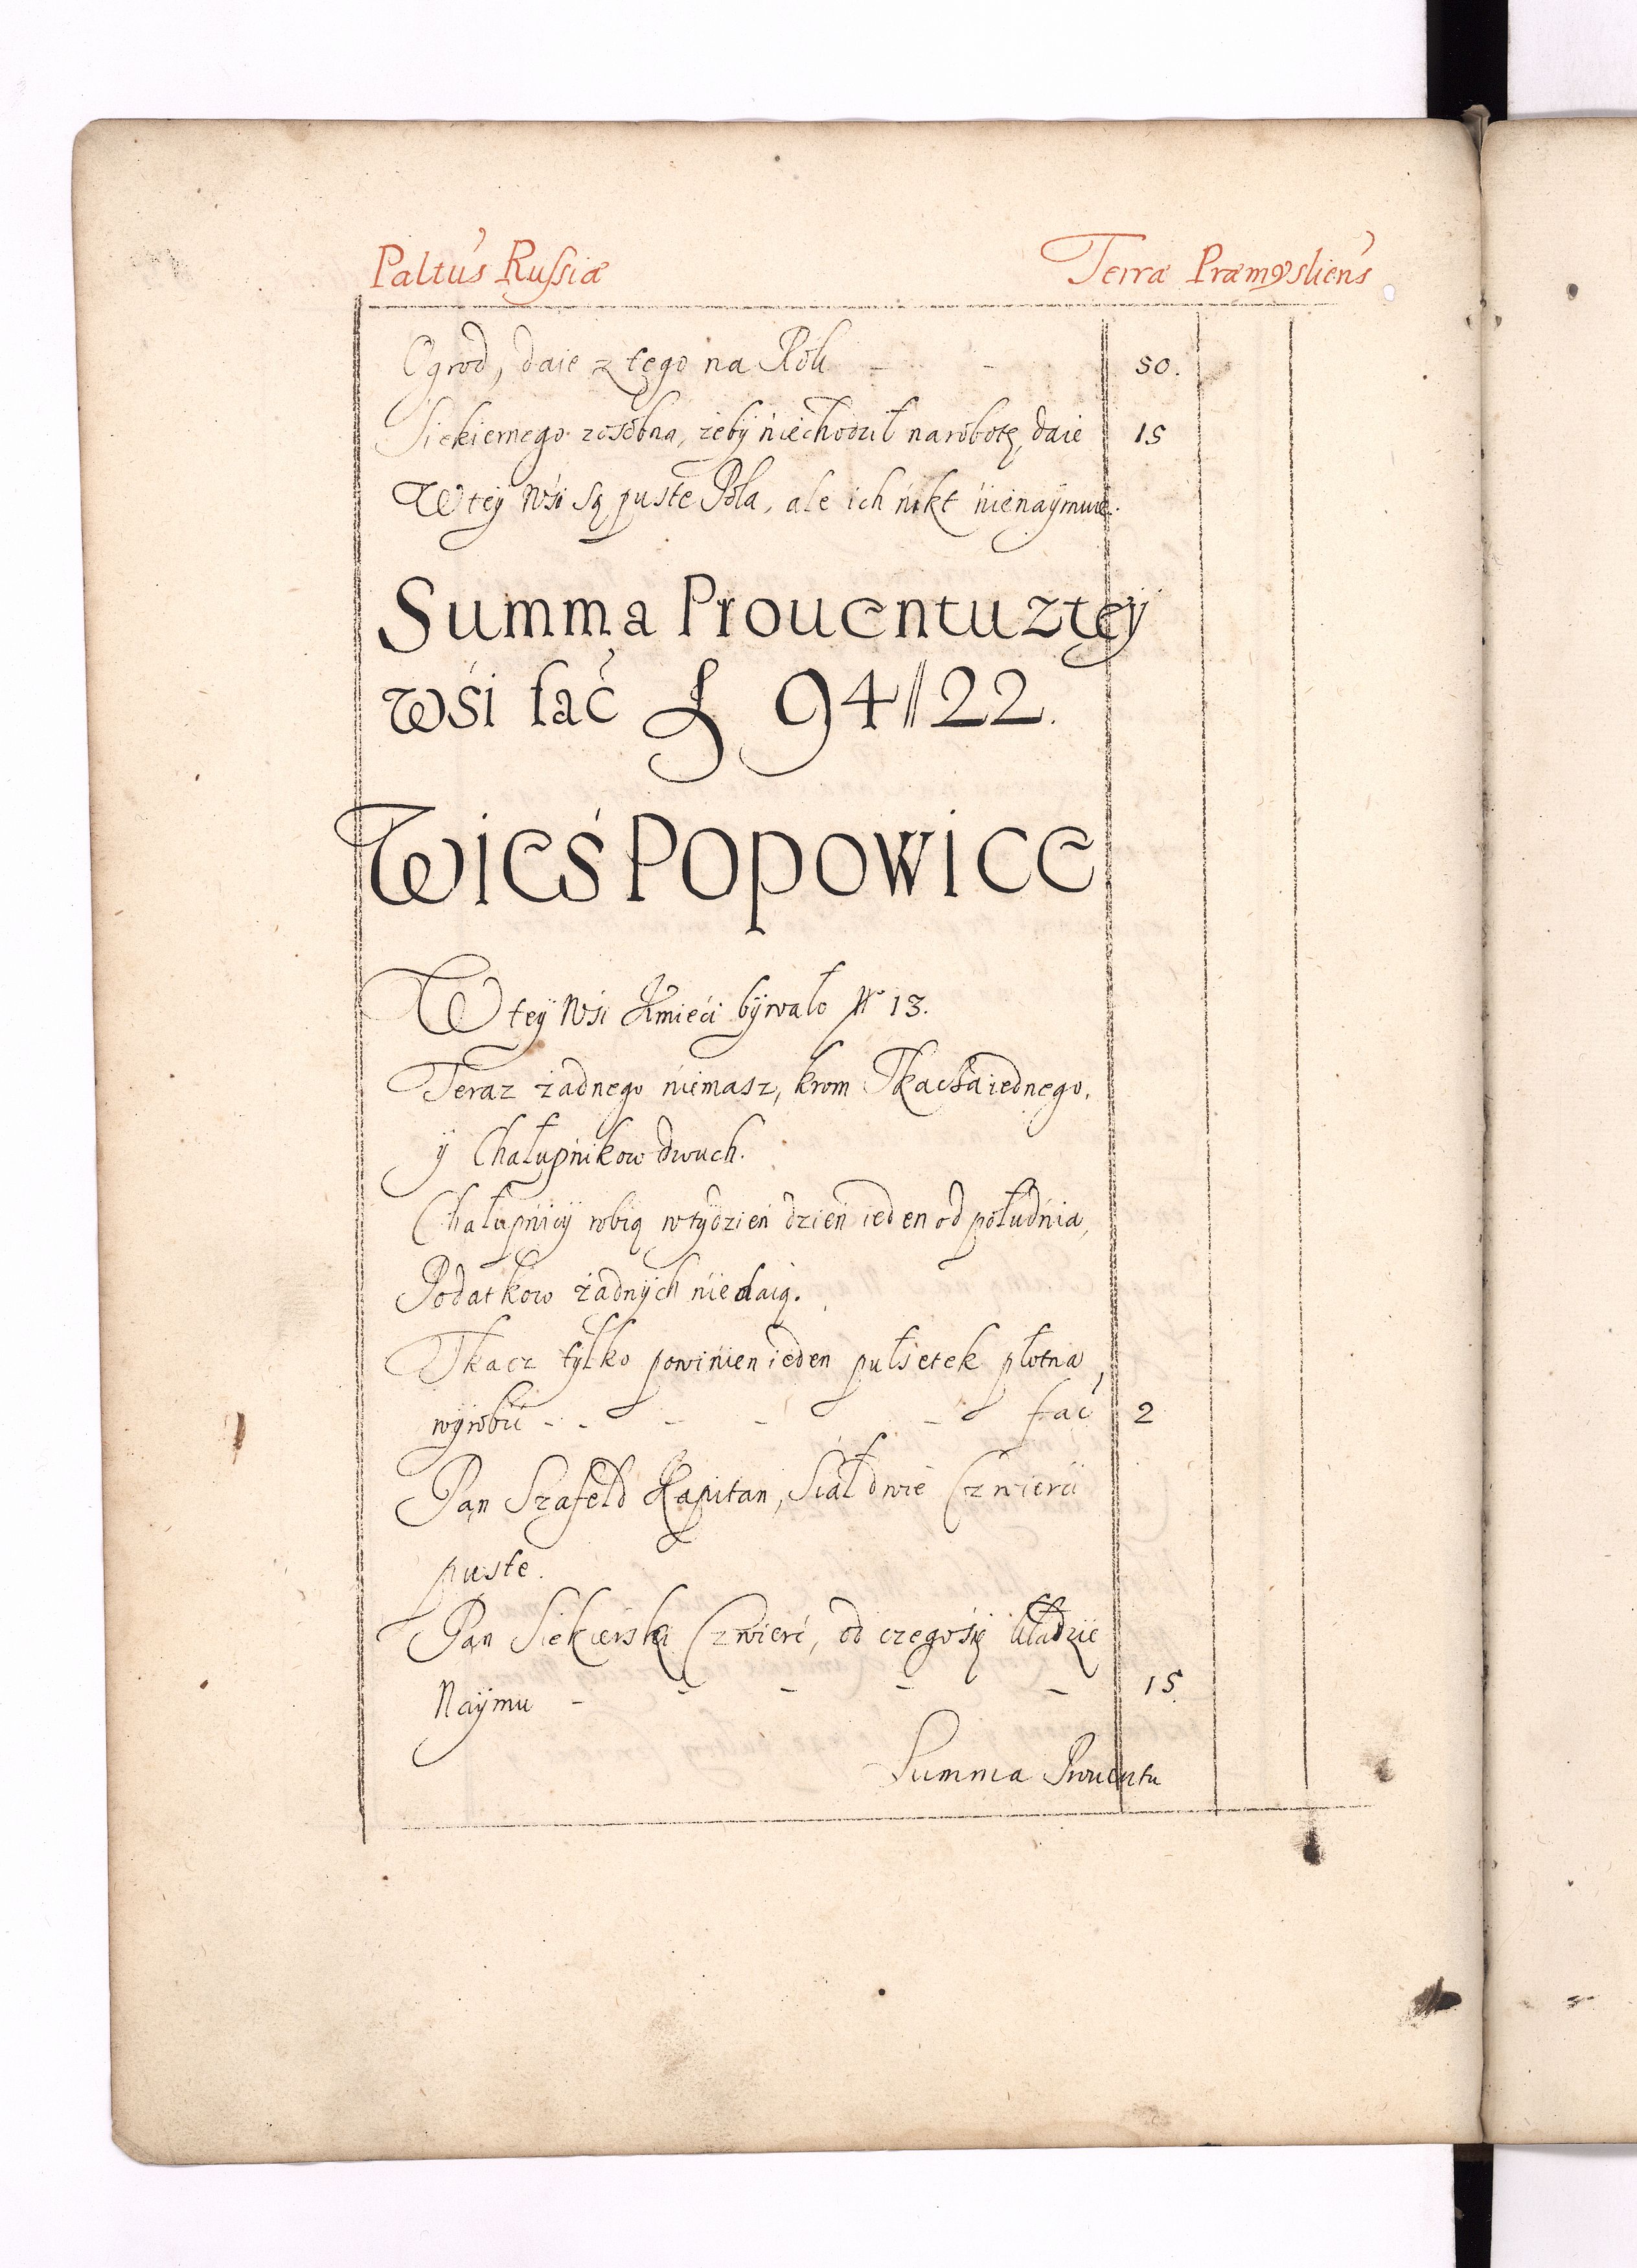 Paltus Russiæ Terræ Præmysliens
Ogrod, daie z tego na Rok - - 50.
Siekiernego zosobna, żeby niechodził narobotę, daie 15
W tey Wsi są puste Pola, ale ich nikt nienaÿmuie.
Summa Prouentu ztey
wśi fać ƒ 94//22.
Wieś Popowice
W teÿ Wśi Kmieći bÿwało Nº 13.
Teraz żadnego niemasz, krom Tkacża iednego,
ÿ Chałupnikow dwuch.
Chałupnicÿ robią w tÿdzień dzień ieden od południa,
Podatkow żadnÿch niedaią.
Tkacz tÿlko powinien ieden pułsetek płotna
wÿrobić - - - - - fać 2
Pan Szafeld Kapitan, Siał dwie Czwierci
puste.
Pan Siekierski Czwierć, od czego się kładzie
Naÿmu - - - - - 15.
Summa Prouentu